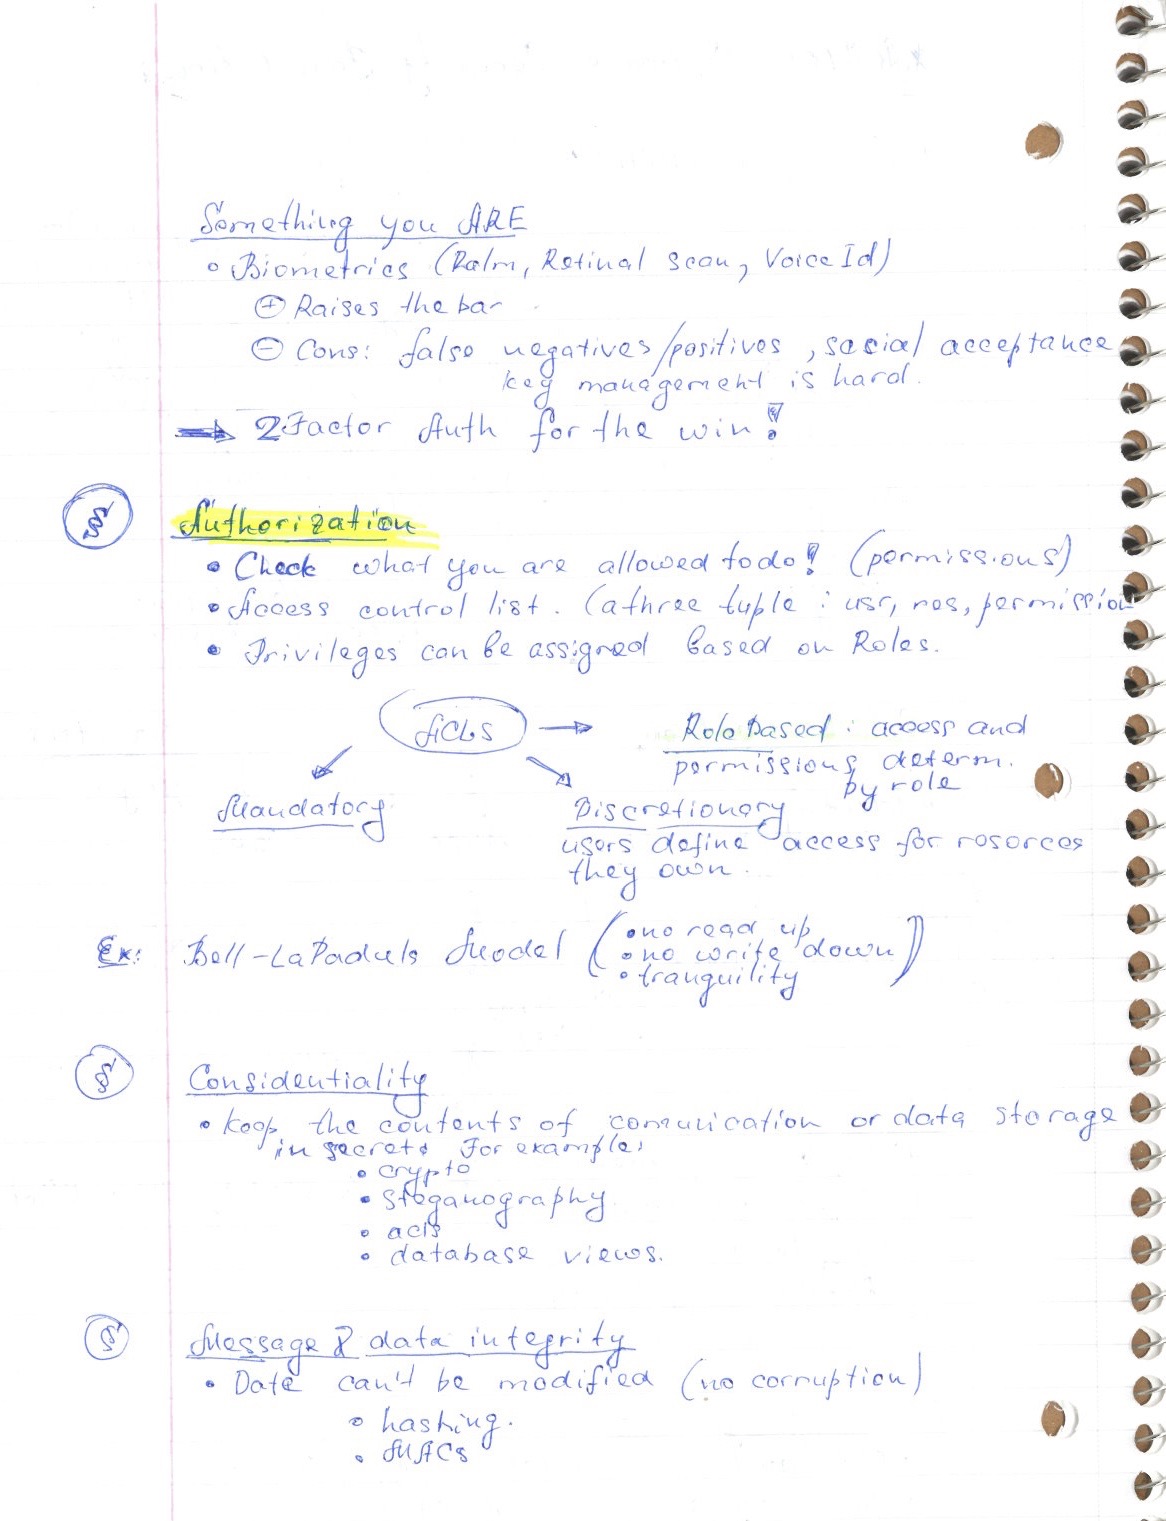 Something you ARE
• Biometrics (Palm, Retinal scan, Voice Id)
⊕ Raises the bar
⊖ Cons: false negatives/positives, social acceptance
key management is hard.
→ 2Factor Auth for the win!
§ Authorization
• Check what you are allowed to do! (permissions)
• Access control list. (a three tuple: usr, res, permission
• Privileges can be assigned based on Roles.
ACLs → Role Based: access and
permissions determ.
by role
Mandatory
Discretionary
users define access for resorces
they own.
Ex: Bell-LaPadula Model (• no read up
• no write down)
• tranquility
§ Considentiality
• keep the contents of comunication or data storage
in secret. For example:
• crypto
• steganography
• acls
• database views.
§ Message & data integrity
• Data can't be modified (no corruption)
• hashing.
• MACs